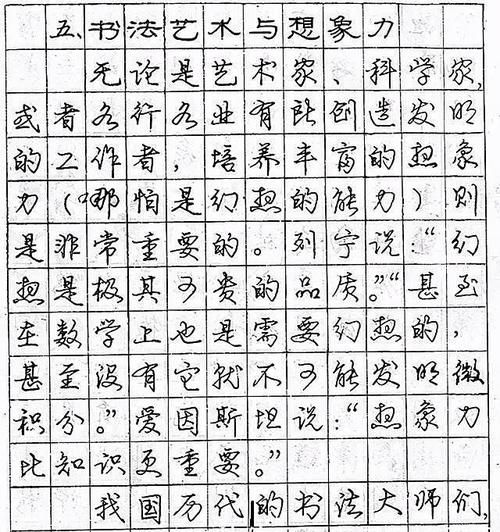 五、书法艺术与想象力
无论是艺术家、科学家,
或者各行各业有能创造发明
的工作者,培养丰富的想象
力(哪怕是幻想的能力)则
是非常重要的。列宁说:“幻
想是极其可贵的品质。”“甚至
在数学上也是需要幻想的,
甚至没有它就不可能发明微
积分。”爱因斯坦说:“想象力
比知识更重要。”
我国历代的书法大师们,